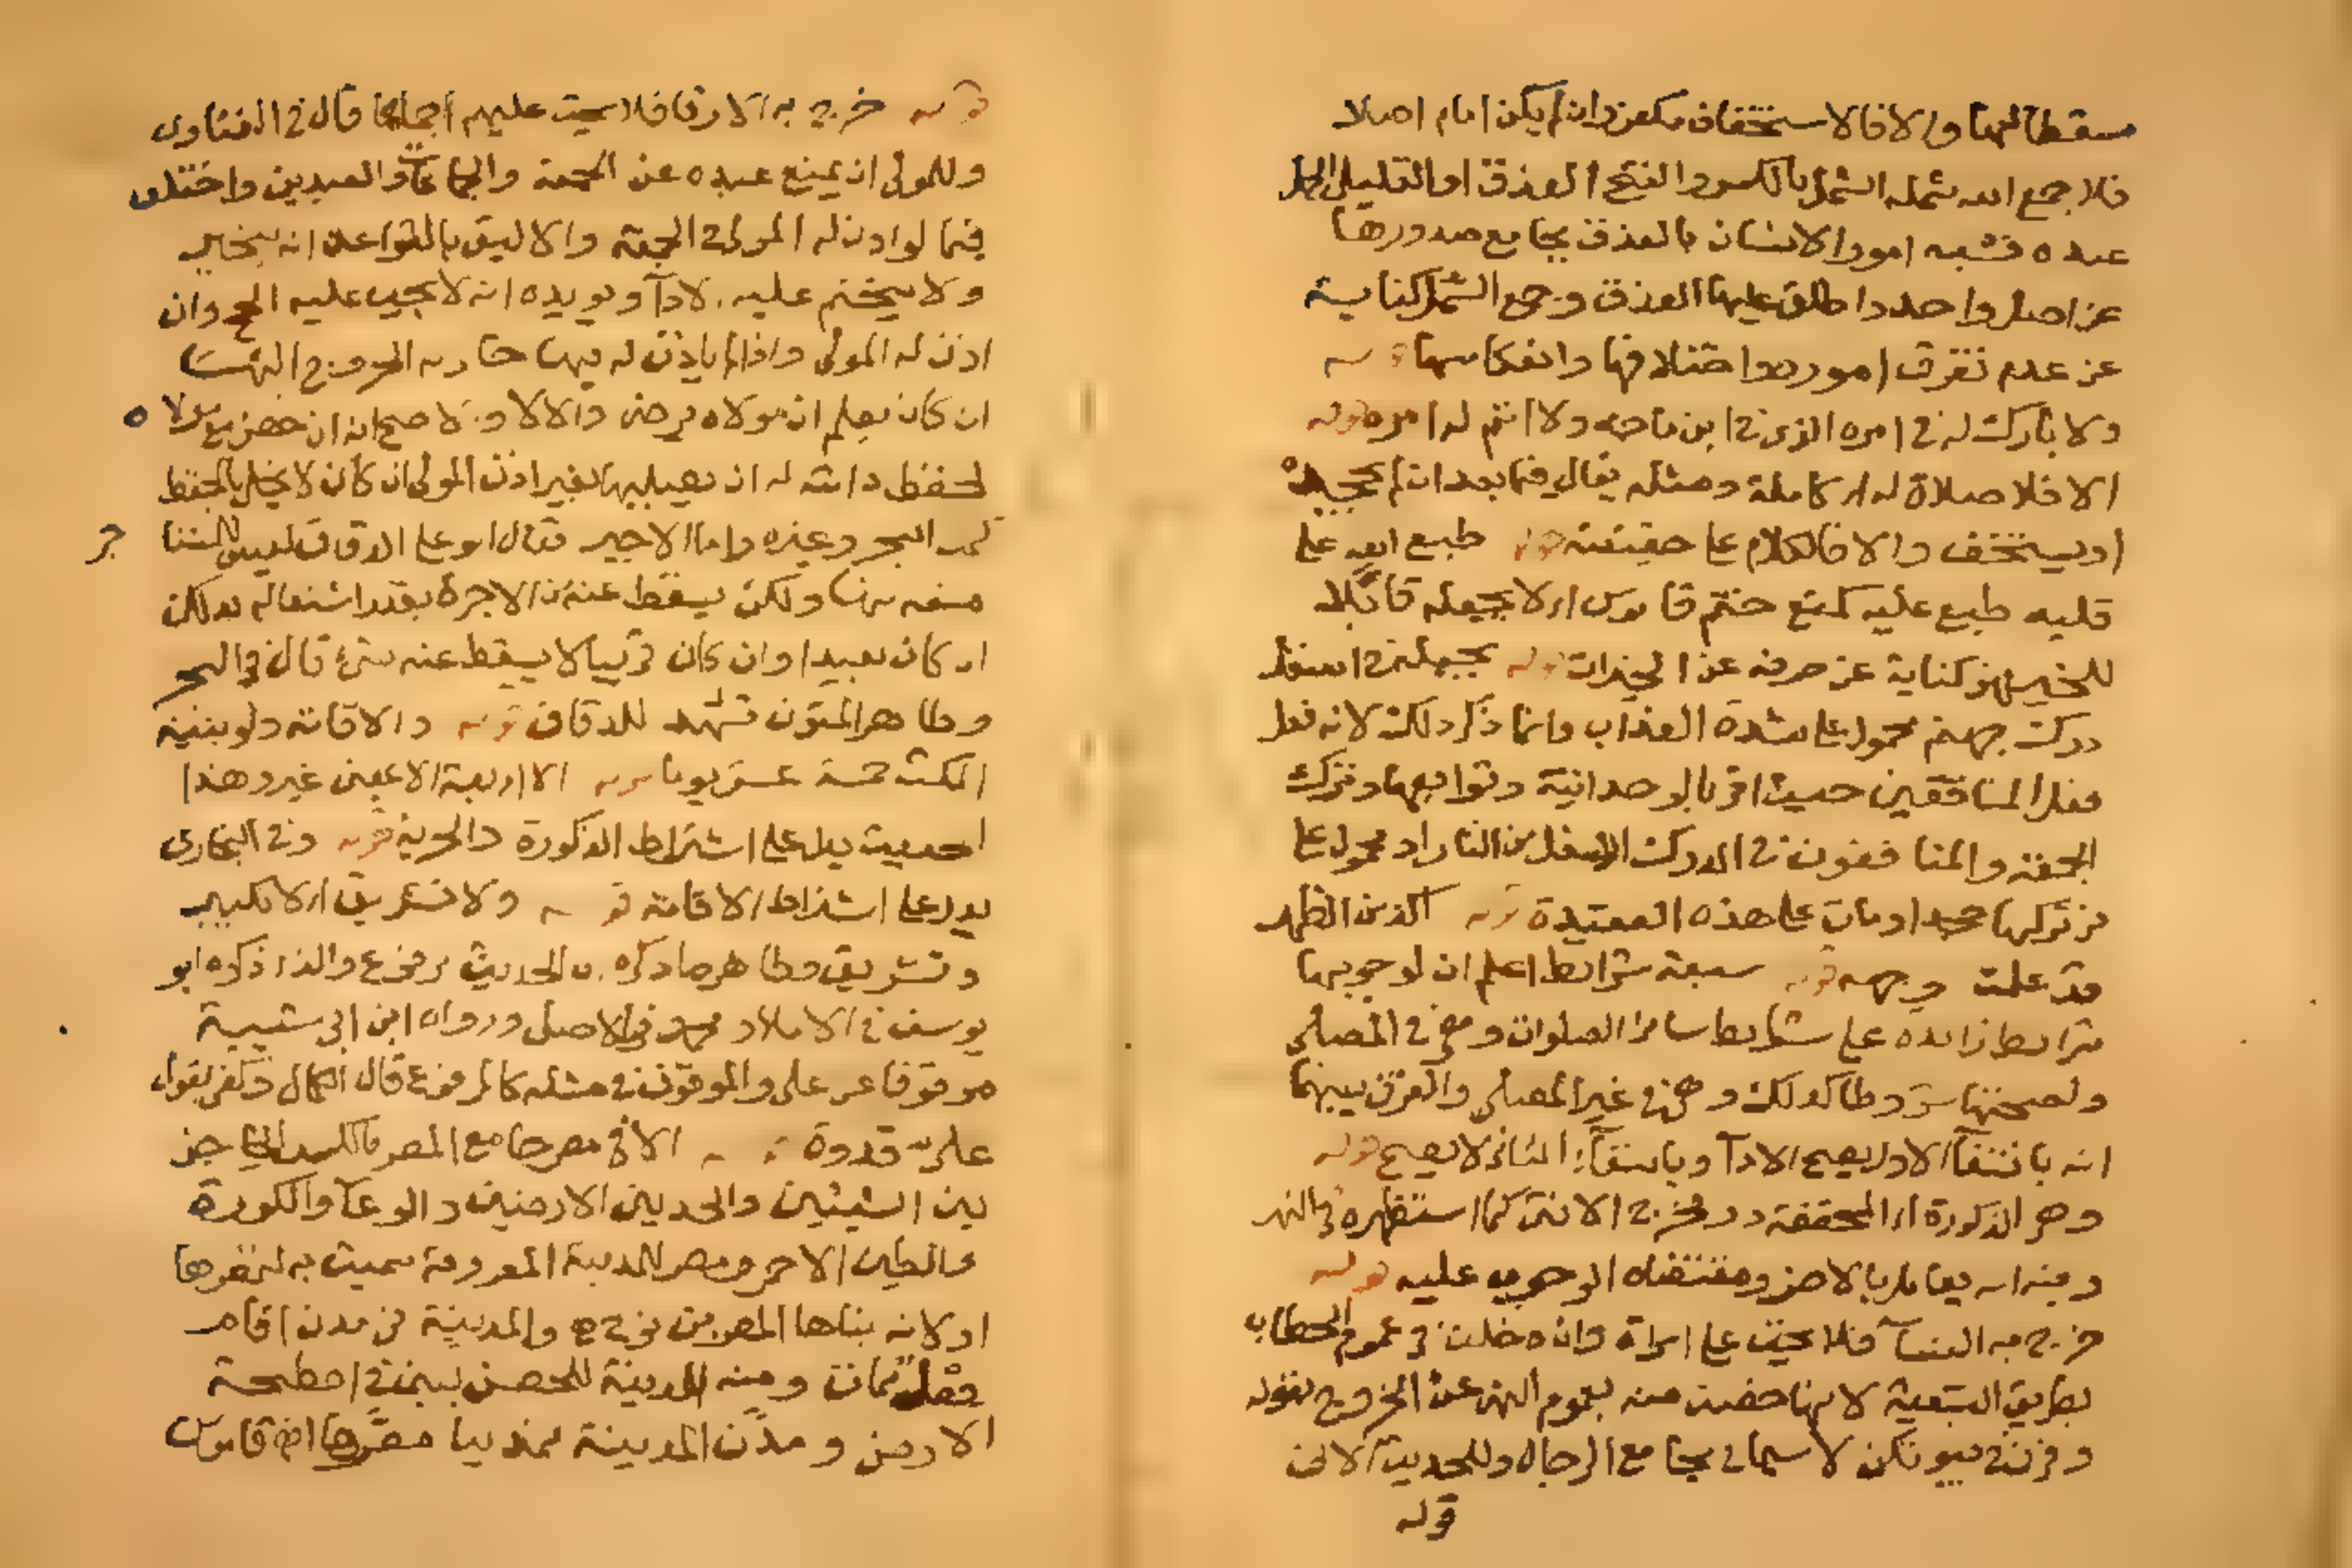 مسقطا لها والا فالاستخفاف مكفر وان لم يكن امام اصلا
فلا جمع الله شمله الشمل بالكسر والفتح العذق او القليل الحمل
عنده فشبه امور الانسان بالعذق بجامع صدورها
عن اصل واحد واطلق عليها العذق وجمع الشمل كناية
عن عدم تفرق اموره واختلافها وانعكاسها قوله
ولا بارك له في امره الذي في ابن ماجه ولا اتم له امره قوله
الا فلا صلاة له اي كاملة ومثله يقال فيما بعد ان لم يجحد
او يستخف والا فالكلام على حقيقته قوله طبع الله على
قلبه طبع عليه كمنع ختم قاموس اي لا يجعله قابلا
للخير فهو كناية عن صرفه عن الخيرات قوله يجعله في اسفل
درك جهنم محمول على شدة العذاب وانما ذكر ذلك لانه فعل
فعل المنافقين حيث اقر بالوحدانية وتوابعها وترك
الجمعة والمنافقون في الدرك الاسفل من النار او محمول على
من تركها جحدا ومات على هذه العقيدة قوله الذين الظهر
قد علمت وجهه قوله سبعة شرائط اعلم ان لوجوبها
شرائط زائدة على شرائط سائر الصلوات وهي في المصلي
ولصحتها شروطا كذلك وهي في غير المصلي والفرق بينهما
انه بانتفاء الاول يصح الاداء وبانتفاء الثاني لا يصح قوله
وهو الذكورة اي المحققة وخرج الانثى كما استظهره في النهر
وفيه انه يعامل بالاضر ومقتضاه الوجوب عليه قوله
خرج به النساء فلا تجب على امراة وان دخلت في عموم الخطاب
بطريق التبعية لانها خصت منه بعموم النهي عن الخروج بقوله
وقرن في بيوتكن لا سيما في مجامع الرجال وللحديث الاتي
قوله
قوله خرج به الارقا فلا تجب عليهم اجماعا قال في الفتاوى
وللمولى ان يمنع عبده عن الجمعة والجماعات والعيدين واختلف
فيما لو اذن له المولى في الجمعة والاليق بالقواعد انه يتخير
ولا يتحتم عليه الاداء ويؤيده انه لا يجب عليه الحج وان
اذن له المولى واذا لم ياذن له فيها جاز له الخروج اليها
ان كان يعلم ان مولاه يرضى والا لا والاصح انه ان حضر مع مولاه
لحفظ دابته له ان يصليها بغير اذن المولى ان كان لا يخل بالحفظ
كما في البحر وغيره واما الاجير فقال ابو علي الدقاق ليس للمستاجر
منعه منها ولكن يسقط عنه من الاجرة بقدر اشتغاله بذلك
ان كان بعيدا وان كان قريبا لا يسقط عنه شيء قال في البحر
وظاهر المتون تشهد للدقاق قوله والاقامة ولو بنية
المكث خمسة عشر يوما قوله الا اربعة الاعين غير وهذا
الحديث يدل على اشتراط الذكورة والحرية قوله وفي البخاري
يدل على اشتراط الاقامة قوله ولا تشريق اي لا تكبير
وتشريق وظاهر ما ذكره ان الحديث مرفوع والذي ذكره ابو
يوسف في الاملا ومحمد في الاصل ورواه ابن ابي شيبة
موقوفا عن علي والموقوف في مثله كالمرفوع قال الكمال وكفى بقول
علي قدوة قوله الا في مصر جامع المصر بالكسر الحاجز
بين الشيئين والحد بين الارضين والوعاء والكورة
والطين الاحمر ومصر المدينة المعروفة سميت به لتمصرها
او لانه بناها المصر بن نوح ص والمدينة من مدن اقام
فعل ممات ومنه المدينة للحصن يبنى في اصطمة
الارض ومدن المدينة تمدينا مصرها اه قاموس